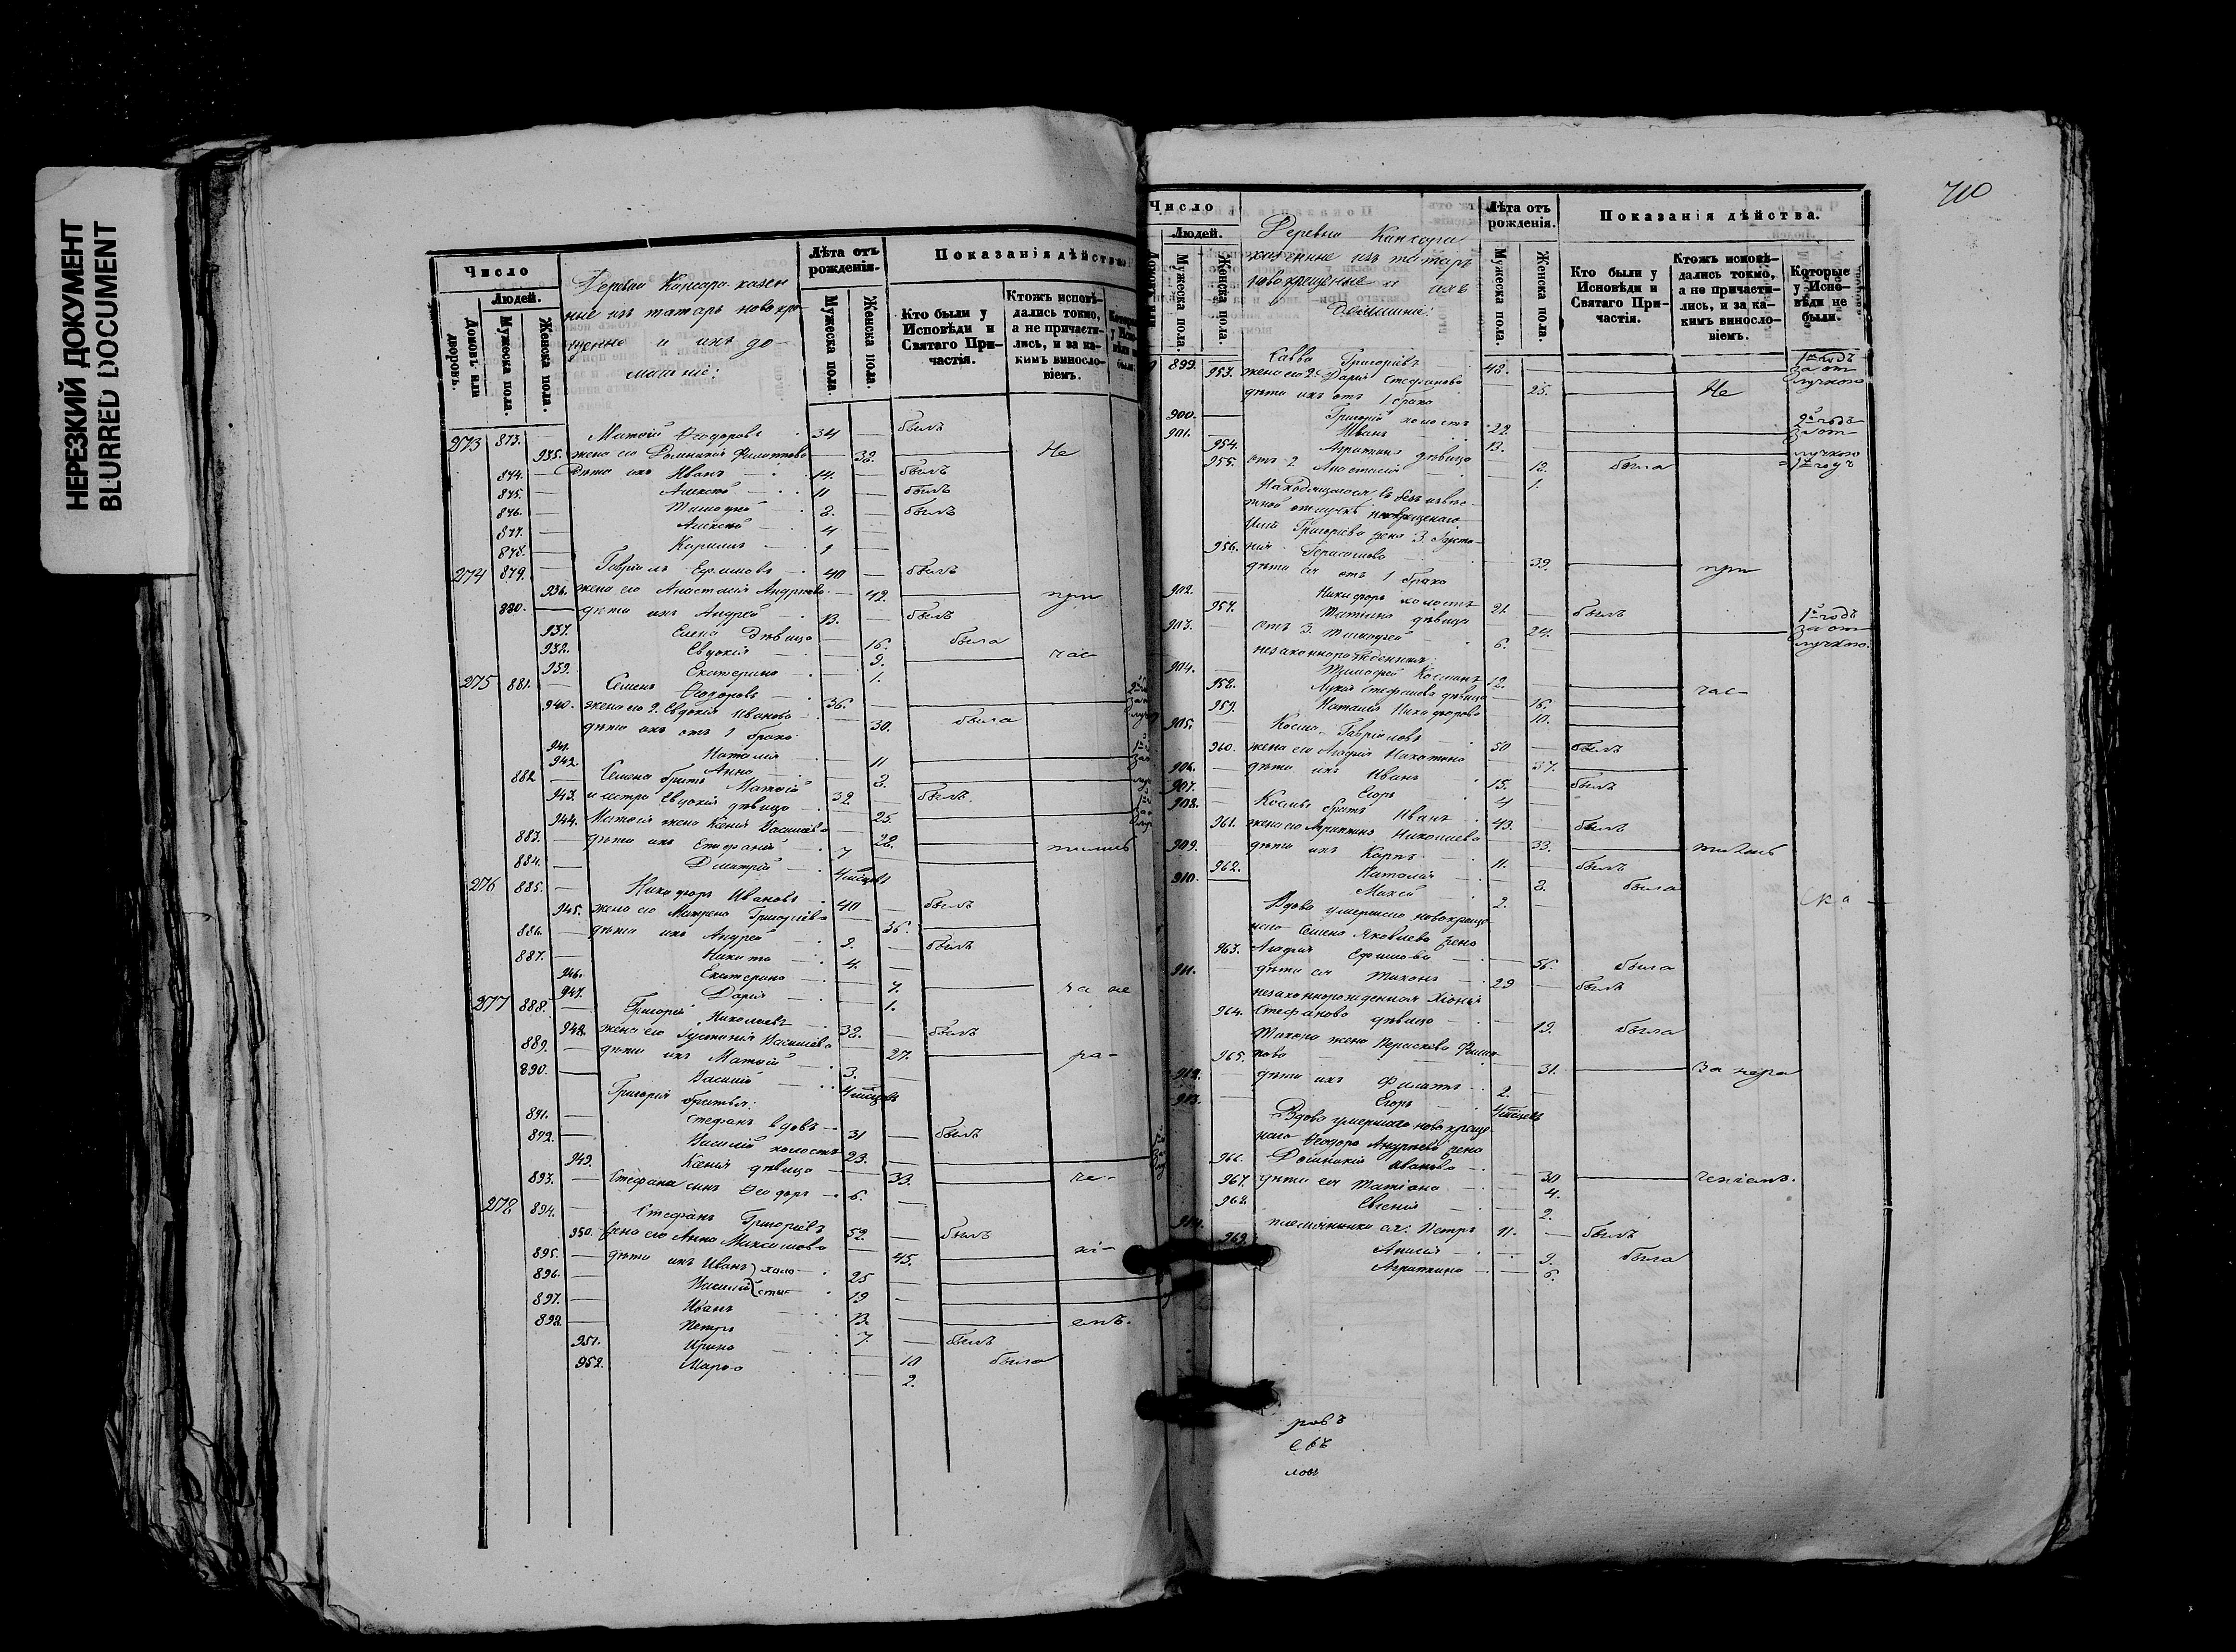 НЕРЕЗКИЙ ДОКУМЕНТ
BLURRED DOCUMENT
Число
Людей.
Домовъ или дворовъ.
Мужеска пола.
Женска пола.
Деревни Кансара казен
ные изъ татаръ новокре
щеные и ихъ до-
машніе:
Лѣта отъ рожденія.
Мужеска пола
Женска пола.
Показанія дѣйства.
Кто были у Исповѣди и Святаго При-
частія.
Ктожъ исповѣ-
дались токмо,
а не причасти-
лись, и за ка-
кимъ винosло-
віемъ.
273 873. — Матѳій Ѳеодоровъ 34 — былъ
935. жена его Домникія — 38. — Не
874. — дѣти ихъ Иванъ 14. — былъ
875. — Алексѣй 11 — былъ
876. — Тимоѳей 8. — былъ
877. — Алексѣй 4 —
878. — Кириллъ 1 —
274 879. — Гавріилъ Ефимовъ 40 — былъ
936. жена его Анастасія Андреева — 42. — при
880. — дѣти ихъ Андрей 13. — былъ
937. Елена дѣвица — 16. была
938. Евдокія — 9. — час
939. Екатерина — 1.
275 881. — Семенъ Ѳеодоровъ 36. —
940. жена его 2. Евдокія Иванова — 30. была
дѣти ихъ отъ 1 брака
941. Наталія — 11
942. Анна — 8.
882 — Семена братъ Матѳій 32. — былъ.
943. и сестра Евдокія дѣвица — 25.
944. Матѳія жена Ксенія Васильева — 28. — тились
883. — дѣти ихъ Епифаній 7
884. — Димитрій 4 мѣсяцъ
276 885. — Никифоръ Ивановъ 40 — былъ
945. жена его Матрена Григорьева — 36.
886. — дѣти ихъ Андрей 9. — былъ
887. — Никита 4. —
946. Екатерина — 7. — за не
947. Дарія — 1.
277 888. — Григорій Николаевъ 32. — былъ
948. жена его Іустинія Васильева — 27. — ра-
889. — дѣти ихъ Матѳій 3. —
890. — Василій 4 мѣсяцъ
Григорія братья:
891. — Стефанъ вдовъ 31 — былъ
892. — Василій холостъ 23. —
949. Ксенія дѣвица — 33. — че-
893. — Стефана сынъ Ѳеодоръ 6. —
278 894. — Стефанъ Григорьевъ 52. — былъ
950. жена его Анна Максимова — 45. — ні-
895. — дѣти ихъ Иванъ холо- 25
896. — Василій сты 19
897. — Иванъ 13. — емъ.
898. — Петръ 7. — былъ
951. Ирина — 10 была
952. Марѳа — 2.
710
Число
Людей.
Мужеска пола.
Женска пола.
Деревни Кансара
казенные изъ татаръ
новокрещеные и ихъ
домашніе:
Лѣта отъ рожденія.
Мужеска пола.
Женска пола.
Показанія дѣйства.
Кто были у Исповѣди и Святаго При-
частія.
Ктожъ исповѣ-
дались токмо,
а не причасти-
лись, и за ка-
кимъ винosло-
віемъ.
Которые у Испо-
вѣди не были.
899. — Савва Григорьевъ 48. — 1й годъ
953. жена его 2. Дарія Стефанова — 25. — Не за от
дѣти ихъ отъ 1 брака лучкою
900. — Григорій холостъ 22. — 2й годъ
901. — Иванъ 13. — за от
954. Агрипина дѣвица — 18. была лучкою
955. отъ 2 Анастасія — 1. 1й годъ
Находящагося въ безъизвѣс-
тной отлучкѣ новокрещенаго
956. Григорьева жена 3. Іусти-
нія Герасимова — 39. — при
дѣти ея отъ 1 брака
902. — Никифоръ холостъ 21. — былъ
957. Татіана дѣвица — 24. — 1й годъ
903. — отъ 3. Тимоѳей 6. — за от
незаконнорожденныя: лучкою.
904. — Тимоѳей Косминъ 12. —
958. Лукія Стефанова дѣвица — 16. — час-
959. Наталія Никифорова — 10.
905. — Косма Гавріиловъ 50 — былъ
960. жена его Агафія Никитина — 37.
906. — дѣти ихъ Иванъ 15. — былъ
907. — Егоръ 4 —
908. — Космы братъ Иванъ 43. — былъ
961. жена его Агрипина Николаева — 33. — тились
909. — дѣти ихъ Карпъ 11. — былъ
962. Наталія — 8. была
910. — Моисей 2. —
Вдова умершаго новокреще-
наго Семена Яковлева жена
963. Агафія Ефимова — 56. была
911. — дѣти ея Тихонъ 29 — былъ
незаконнорожденная Хіонія
964. Стефанова дѣвица — 19. была
Тихона жена Параскева Филип-
965. пова — 31. — за нера
912. — дѣти ихъ Филатъ 2. —
913. — Егоръ 4 мѣсяцъ
Вдова умершаго новокреще-
наго Ѳеодора Андреева жена
966. Домникія Иванова — 30 — ченіемъ.
967. дѣти ея Татіана — 4.
968. Евгенія — 2.
914. — племянники ея: Петръ 11. — былъ
969. Анисія — 9. была
Агрипина — 6.
ровъ
евъ
ловъ